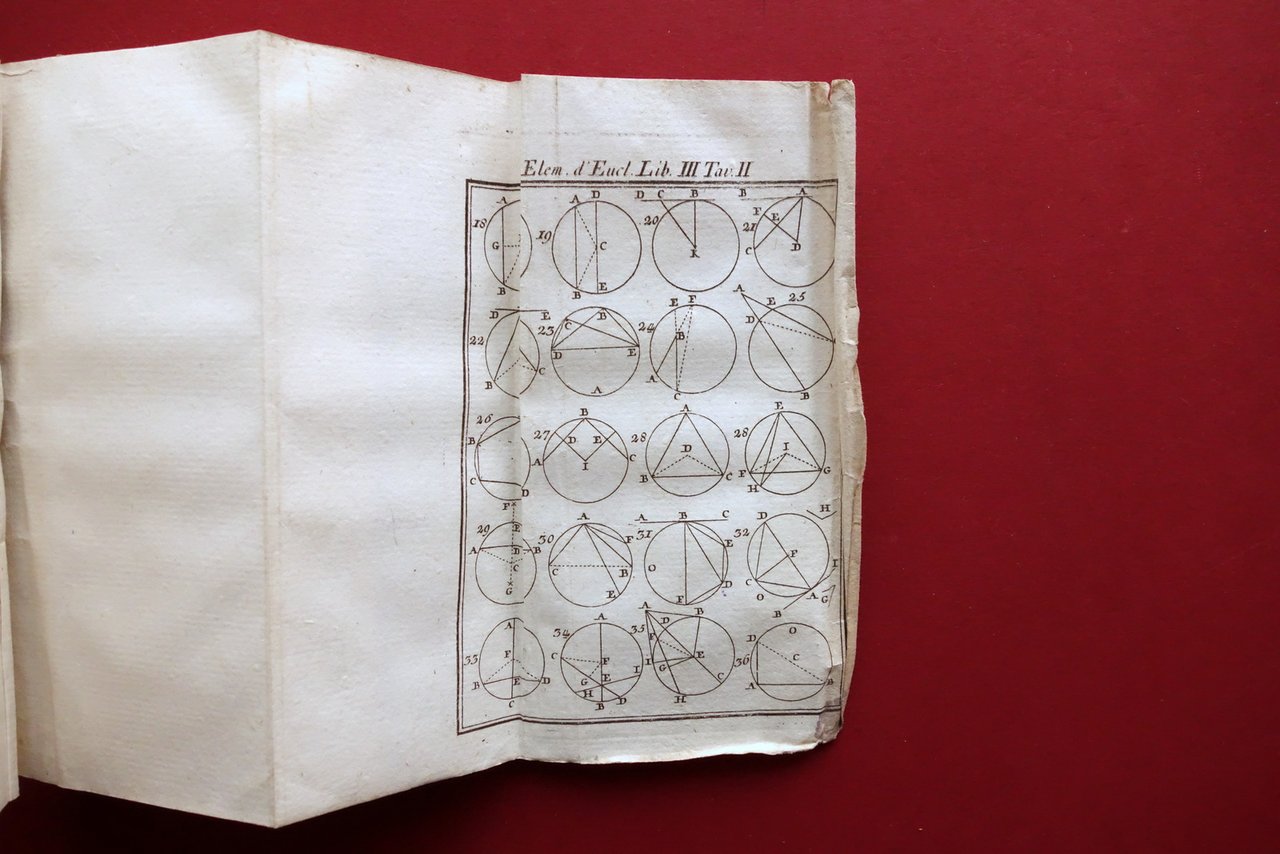 Elem. d'Eucl. Lib. III Tav. II
A D D C B B A
18 19 20 21 F E
G C K D C
B B E
D E C B E F A E 25
22 23 24 B D
D E
B C A A C B
26 B A E
B 27 D E 28 D 28 I
A I C
C D B C F G
H
F A A B C D H
29 E 30 F 31 E 32
A D B C B O D F I
C C O A G
G E F B
A A A B O
33 F 34 C F 35 D F D
I I G E C
B E D G E C 36 A B
C H B D H